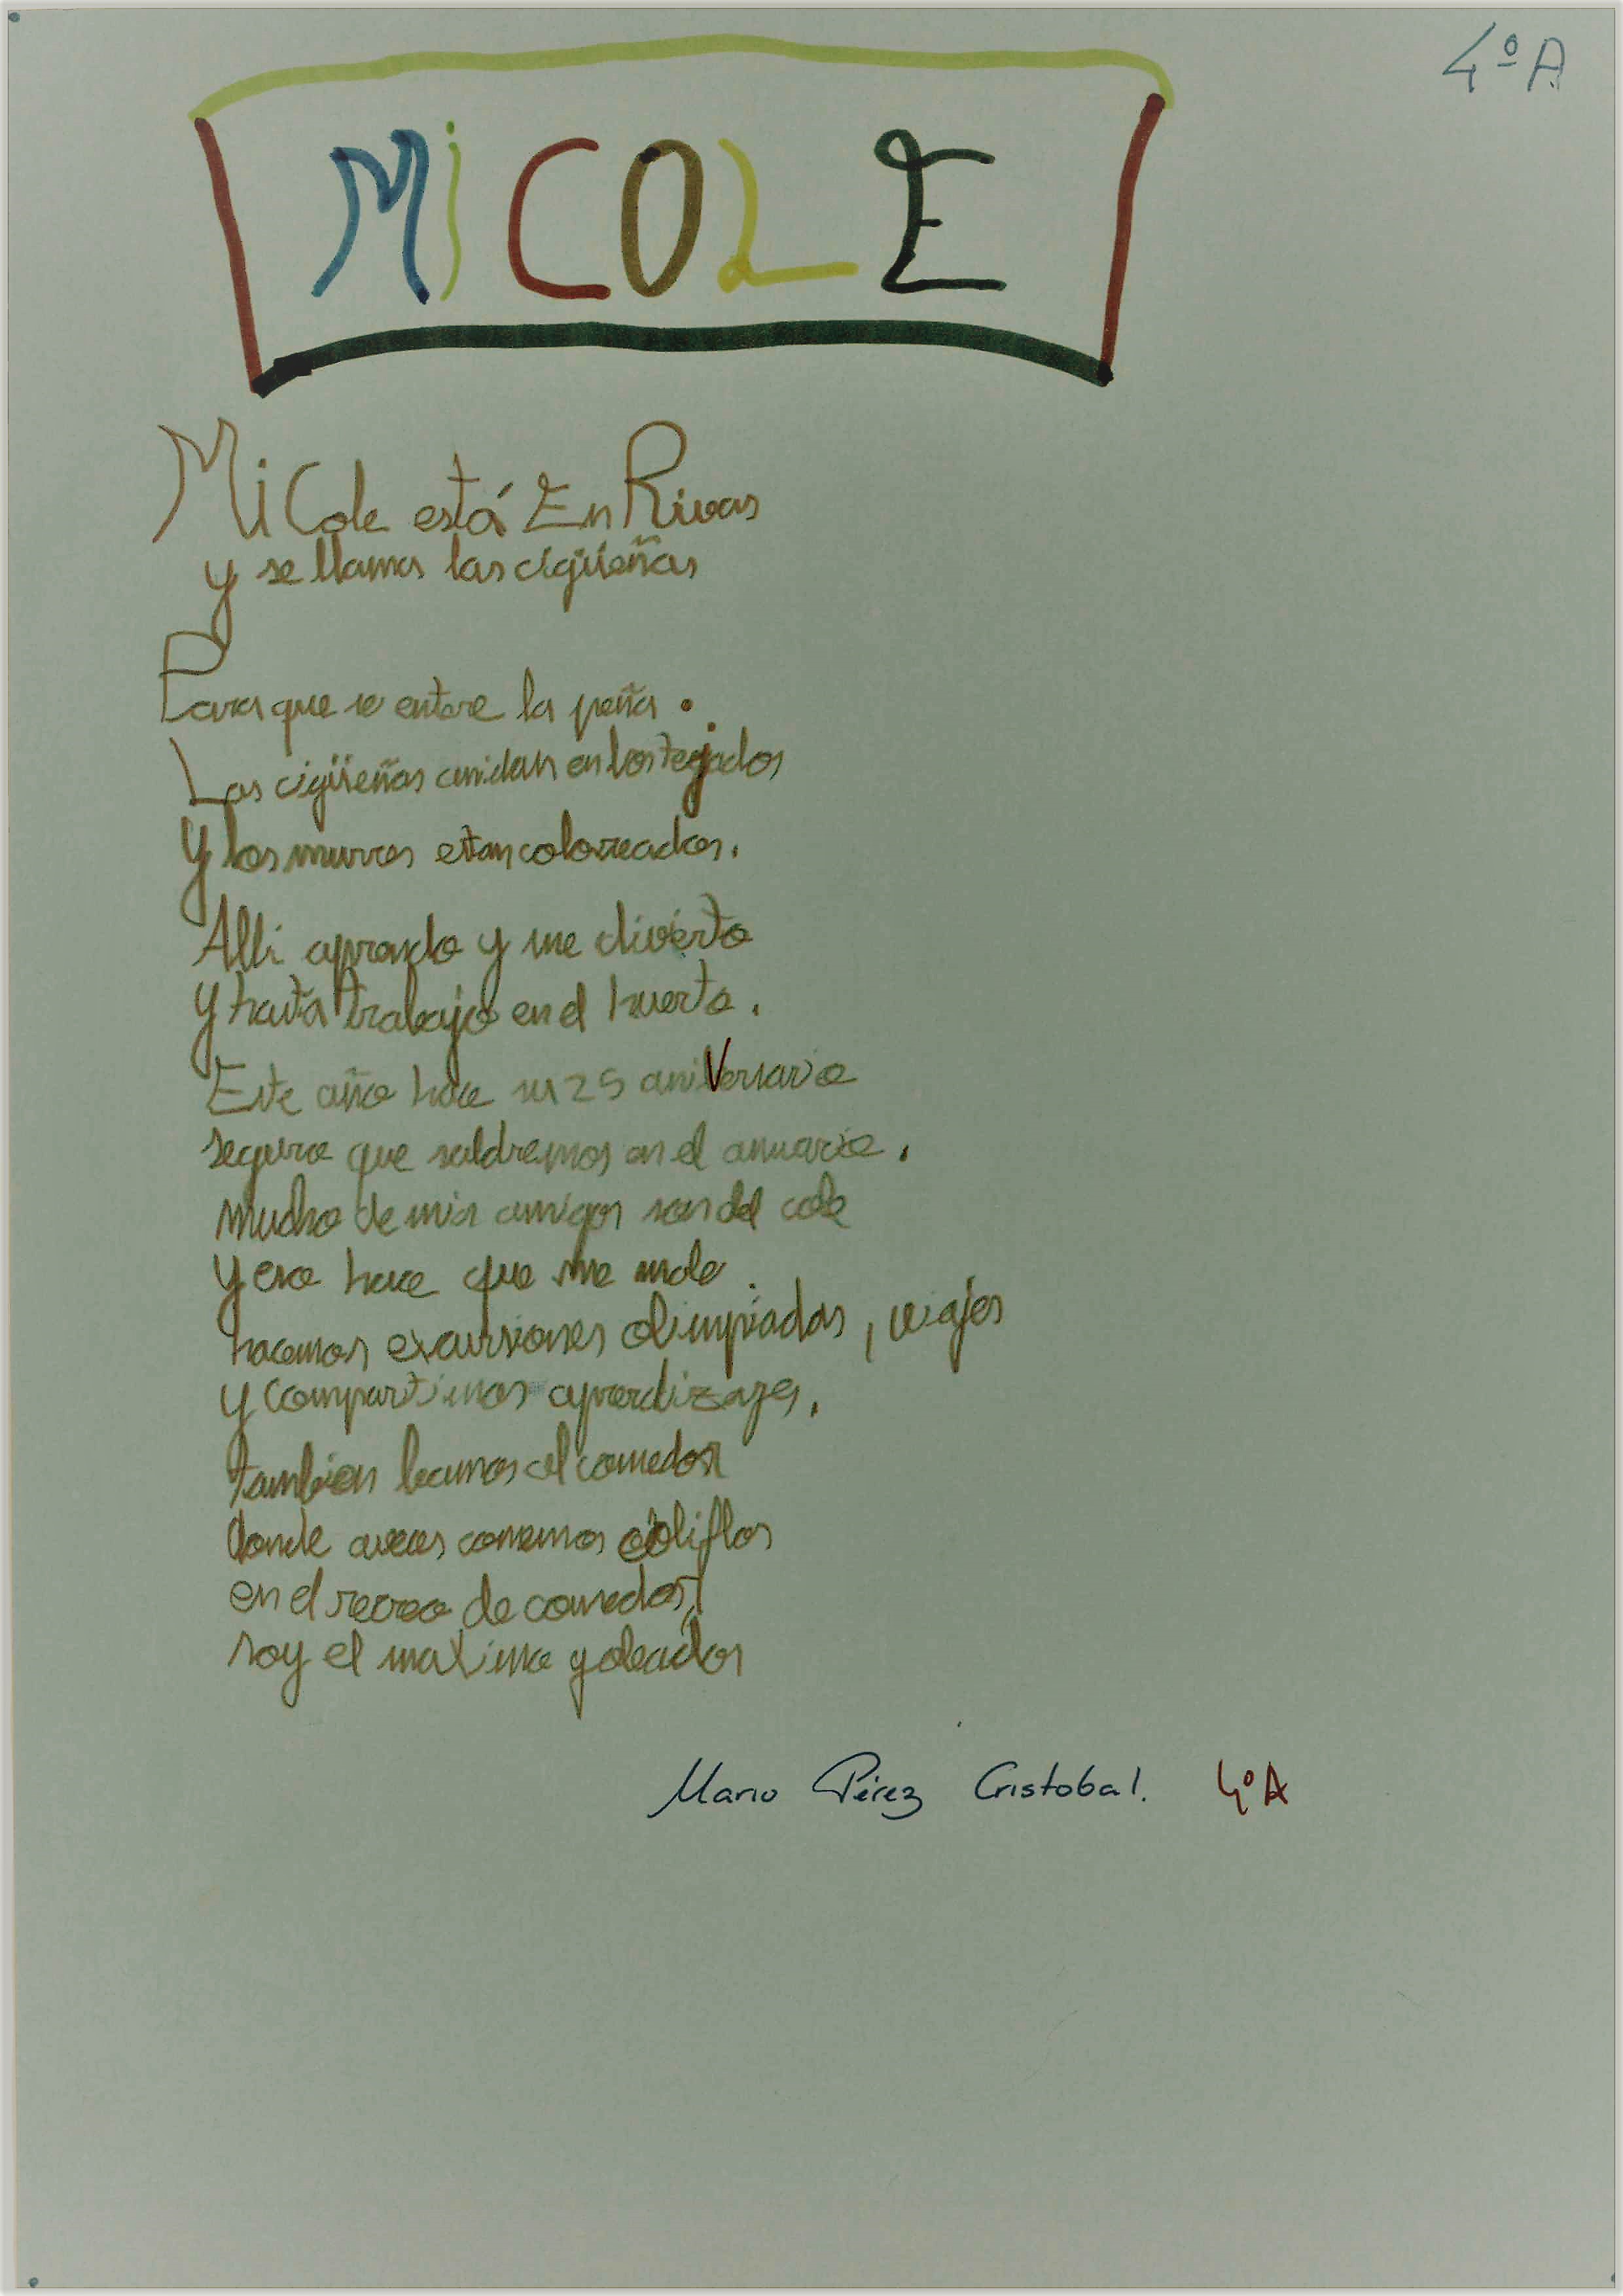 4º A
Mi COLE
Mi Cole está En Rivas
y se llama las cigüeñas
Para que se entere la peña.
Las cigüeñas anidan en los tejados
Y los muros estan coloreados.
Alli aprendo y me divierto
y hasta trabajo en el huerto.
Este año hace su 25 aniversario
seguro que saldremos en el anuario.
mucho de mis amigos son del cole
y eso hace que me mole.
hacemos excursiones olimpiadas, viajes
y compartimos aprendizajes.
tambien vamos al comedor
donde aveces comemos coliflor
en el recreo de comedor
soy el maximo goleador
Mario Pérez Cristobal. 4ºA